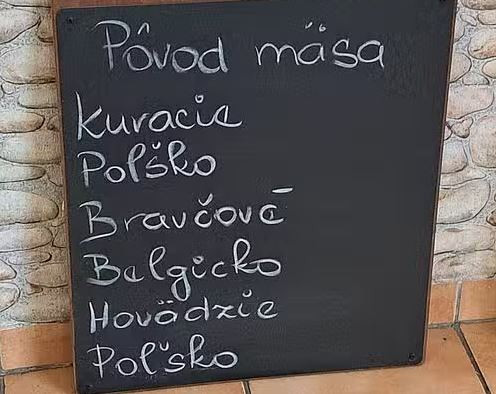 Pôvod mäsa
Kuracie
Poľško
Bravčové
Belgicko
Hovädzie
Poľsko